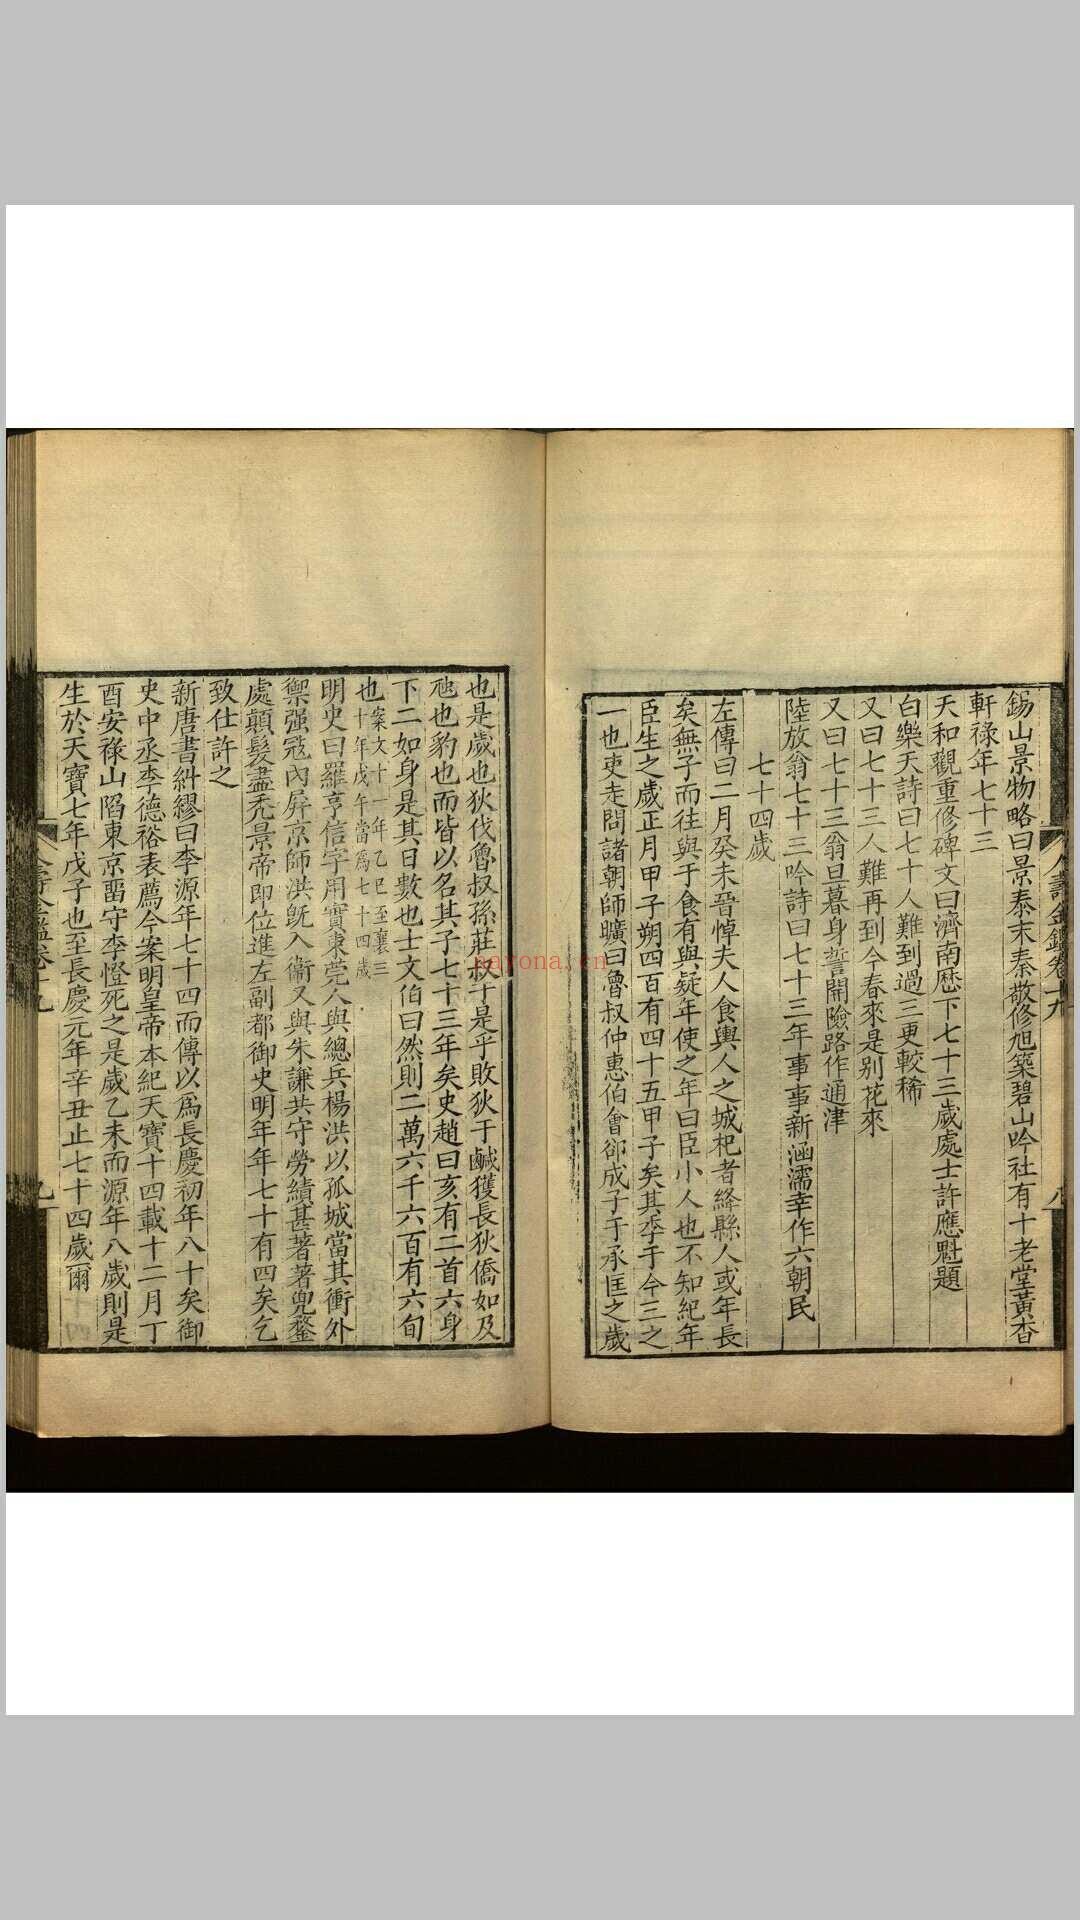 錫山景物略曰景泰末秦敬修旭築碧山吟社有十老堂黃杏
軒祿年七十三
天和觀重修碑文曰濟南歷下七十三歲處士許應魁題
白樂天詩曰七十人難到過三更較稀
又曰七十三人難再到今春來是别花來
又曰七十三翁旦暮身誓開險路作通津
陸放翁七十三吟詩曰七十三年事事新涵濡幸作六朝民
七十四歲
左傳曰二月癸未晉悼夫人食輿人之城杞者絳縣人或年長
矣無子而往與于食有與疑年使之年曰臣小人也不知紀年
臣生之歲正月甲子朔四百有四十五甲子矣其季于今三之
一也吏走問諸朝師曠曰魯叔仲惠伯會郤成子于承匡之歲
人壽金鑑卷十九
八
也是歲也狄伐魯叔孫莊叔于是乎敗狄于鹹獲長狄僑如及
虺也豹也而皆以名其子七十三年矣史趙曰亥有二首六身
下二如身是其日數也士文伯曰然則二萬六千六百有六旬
也案文十一年乙巳至襄三
十年戊午當爲七十四歲
明史曰羅亨信字用實東莞人與總兵楊洪以孤城當其衝外
禦强寇內屏京師洪旣入衞又與朱謙共守勞績甚著著兜鍪
處顛髮盡禿景帝即位進左副都御史明年年七十有四矣乞
致仕許之
新唐書糾繆曰李源年七十四而傳以爲長慶初年八十矣御
史中丞李德裕表薦今案明皇帝本紀天寶十四載十二月丁
酉安祿山陷東京畱守李憕死之是歲乙未而源年八歲則是
生於天寶七年戊子也至長慶元年辛丑止七十四歲爾
人壽金鑑卷十九
九
nayona.cn